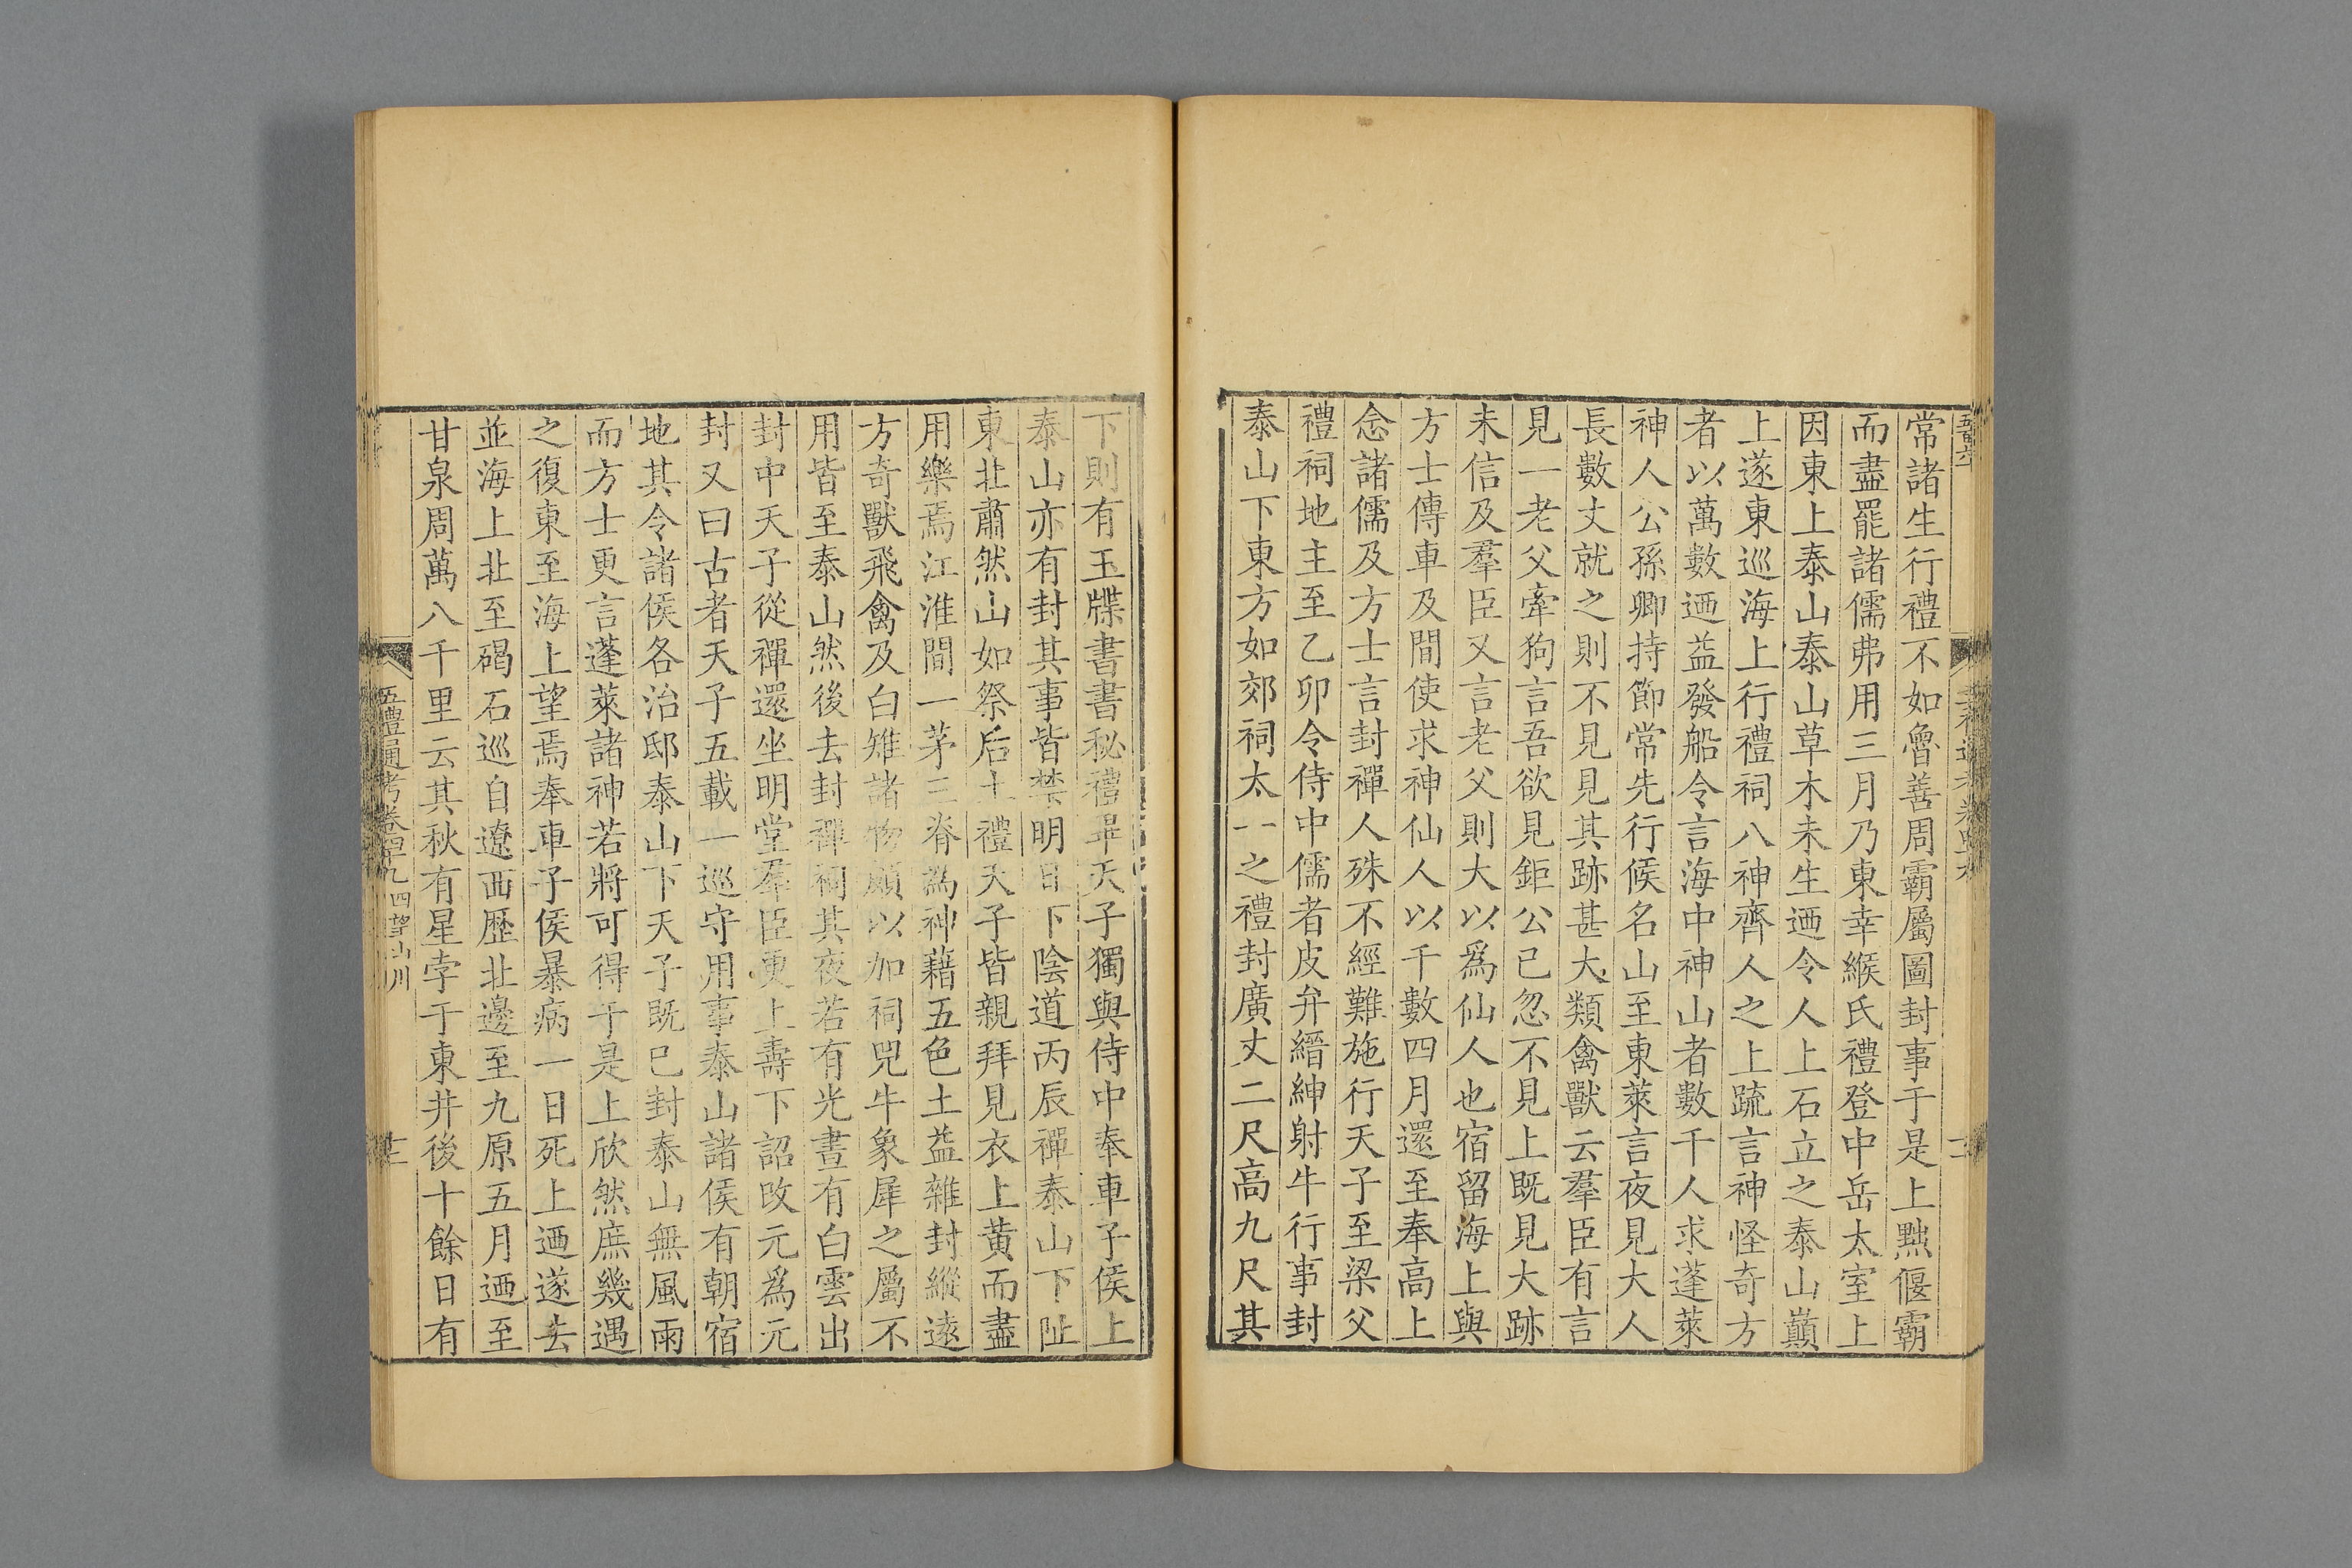 常諸生行禮不如魯善周霸屬圖封事于是上黜偃霸
而盡罷諸儒弗用三月乃東幸緱氏禮登中岳太室上
因東上泰山泰山草木未生迺令人上石立之泰山巔
上遂東巡海上行禮祠八神齊人之上疏言神怪奇方
者以萬數迺益發船令言海中神山者數千人求蓬萊
神人公孫卿持節常先行候名山至東萊言夜見大人
長數丈就之則不見見其跡甚大類禽獸云羣臣有言
見一老父牽狗言吾欲見鉅公已忽不見上既見大跡
未信及羣臣又言老父則大以爲仙人也宿留海上與
方士傳車及間使求神仙人以千數四月還至奉高上
念諸儒及方士言封禪人殊不經難施行天子至梁父
禮祠地主至乙卯令侍中儒者皮弁縉紳射牛行事封
泰山下東方如郊祠太一之禮封廣丈二尺高九尺其
下則有玉牒書書秘禮畢天子獨與侍中奉車子侯上
泰山亦有封其事皆禁明日下陰道丙辰禪泰山下阯
東北肅然山如祭后土禮天子皆親拜見衣上黃而盡
用樂焉江淮間一茅三脊爲神藉五色土益雜封縱遠
方奇獸飛禽及白雉諸物頗以加祠兕牛象犀之屬不
用皆至泰山然後去封禪祠其夜若有光晝有白雲出
封中天子從禪還坐明堂羣臣更上壽下詔改元爲元
封又曰古者天子五載一巡守用事泰山諸侯有朝宿
地其令諸侯各治邸泰山下天子既已封泰山無風雨
而方士更言蓬萊諸神若將可得于是上欣然庶幾遇
之復東至海上望焉奉車子侯暴病一日死上迺遂去
並海上北至碣石巡自遼西歷北邊至九原五月迺至
甘泉周萬八千里云其秋有星孛于東井後十餘日有
五禮通考卷四十九四望山川